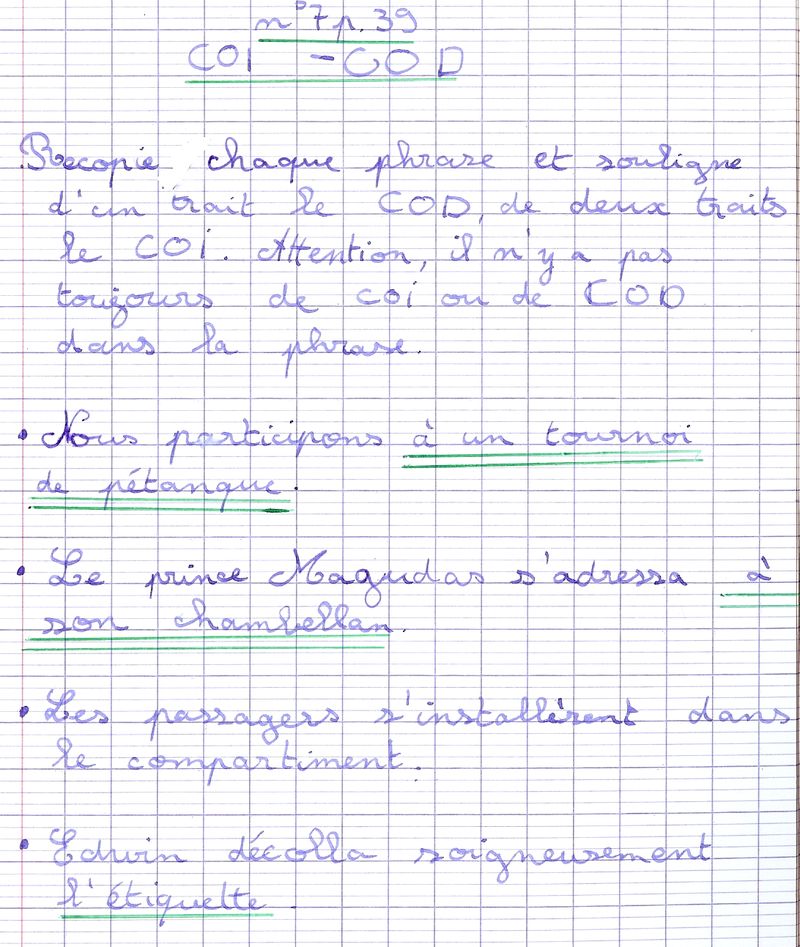 n°7 p.39
COI - COD
Recopie chaque phrase et souligne
d'un trait le COD, de deux traits
le COI. Attention, il n'y a pas
toujours de coi ou de COD
dans la phrase.
• Nous participons à un tournoi
de pétanque.
• Le prince Magudas s'adressa à
son chambellan.
• Les passagers s'installèrent dans
le compartiment.
• Edwin décolla soigneusement
l'étiquette.